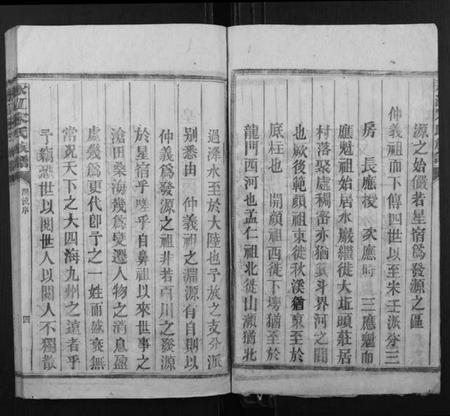 源之始儼若星宿爲發源之區
仲義祖而下傳四世以至宋壬派分三
房 長應梭 次應時 三應魁而
應魁祖始居水巖繼徙大坵頭莊居
村落聚處稠密亦猶斗界河之闊
也厥後範顏祖東徙秋渼猶東至於
底柱也 開顏祖西徙下壕猶西至
龍門西河也孟仁祖北徙山瀬猶北
過洚水至於大陸也予族之支分派
别悉由 仲義祖之淵源有自則以
仲義爲發源之祖非若百川之發源
於星宿乎嗟乎自鼻祖以來世事之
滄田桑海幾爲變遷人物之消息盈
虛幾爲更代卽予之一姓而盛衰無
常况天下之大四海九州之遠者乎
予竊恐世以閱世人以閱人不獨散
四